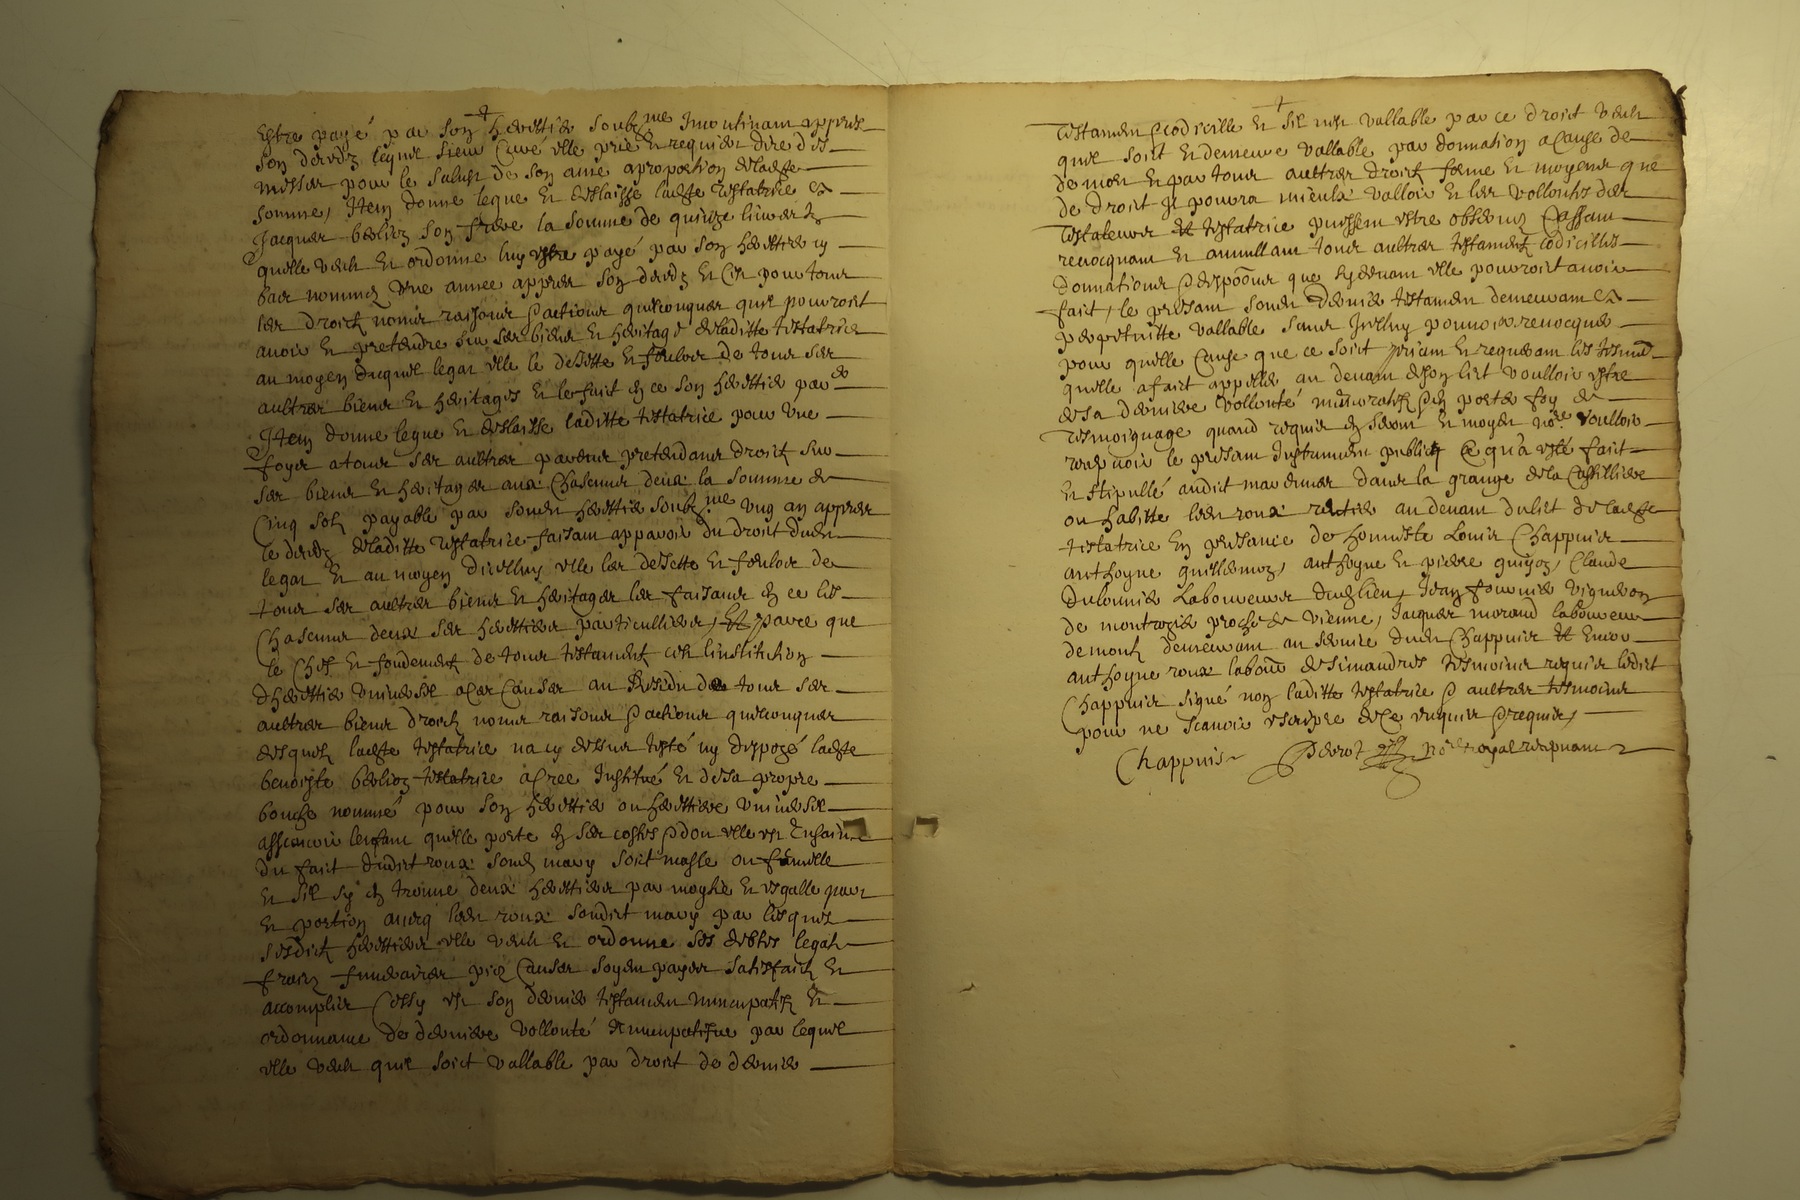 Estre payé par son herittier soubz.me Incontinant appres
son decedz lequel sieur Curé elle prie Et requier dire des
messes pour le salust de son ame a proportion de ladte
somme, Item donne legue Et deslaisse ladte testatrice a
Jacques berlioz son frere la somme de quinze livres tz
quelle veult Et ordonne luy estre payé par son herittier cy
bas nommez une annee appres son decedz Et C'est pour tous
les droictz noms raisons & actions quelconques quil pourroit
avoir Et pretendre sur ses biens Et heritage de laditte testatrice
au moyen duquel legat elle le desiette Et forclos de tous ses
aultres biens Et heritages Et le faict En ce son herittier par.er
Item donne legue Et deslaisse laditte testatrice pour une
foys a tous ses aultres parens pretendans droictz sur
ses biens Et heritages aux Chascuns deux la somme de
Cinq solz payable par sondt herittier soubz.me ung an appres
le decedz de laditte testatrice faisant apparoir du droict dudt
legat Et au moyen dicelluy elle les desiette Et forclos de
tous ses aultres biens Et heritages les faisans En ce les
Chascuns deux ses herittiers particulliers, Et parce que
le Chef Et fondement de tous testamentz est linstitution
dherittier universel a ces Causes au Residu de tous ses
aultres biens droictz noms raisons & actions quelconques
desquelz ladte testatrice na cy dessus testé ny disposé ladte
benoiste berlioz testatrice a Cree Institué Et de sa propre
bouche nommé pour son herittier ou herittiere universel
assavoir lenfant quelle porte En ses costes & dont elle est Enceinte
du faict dudict roux sondt mary soict masle ou femelle
Et sil sy En trouve deux herittiers par moytie Et esgalle part
Et portion avecq ledt roux sondict mary par lesquelz
sesdictz herittiers elle veult Et ordonne ses debtes legatz
fraiz funeraires piez Causes soyent payes satisfaictz Et
accomplis Cessy est son dernier testament nuncupatif Et
ordonnance de derniere vollonté Et nuncupatifve par lequel
elle veult quil soict vallable par droict de dernier
Testament & Codicille Et sil nest vallable par ce droict veult
quil soict Et demeure vallable par donnation a Cause de
de mort Et par tous aultres droictz forme Et moyens que
de droict Il pourra mieulx valloir Et les vollontes des
Testateurs Et testatrice puissent estre observez Cassant
revocquant Et annullant tous aultres testamentz Codicilles
donnations & disp͠ons que Cy devant elle pourroict avoir
faict, le present sondt dernier testament demeurant a
perpetuitte vallable sans Icelluy pouvoir revocquer
pour quelle Cause que ce soict priant Et requerant les tesmoins
quelle a faict appeller au devant de son lict voulloir estre
de sa derniere vollonté memoratifz & En porter foy de
Tesmoignage quand requis En seront Et moyen no.re voulloir
recepvoir le present Instrument publicq Ce qu'a esté faict
Et stipullé audict mardenier dans la grange de la Castilliere
ou habitte ledt roux rentier au devant du lict de ladte
testatrice En presence de honneste Louis Chappuis
anthoyne guillermoz, anthoyne Et pierre guigoz, Claude
Dulonnier Laboureurs dudt lieu, Jean fournier vigneron
de montrozier proche de vienne, Jacques morand laboureur
demontz demeurant au service dudt Chappuis Et Encor
anthoyne roux labour de simandres tesmoins requis ledict
Chappuis signé non laditte testatrice & aultres tesmoins
pour ne scavoir escripre de Ce enquis & requis,
Chappuis Perrot no.re Royal recepvant